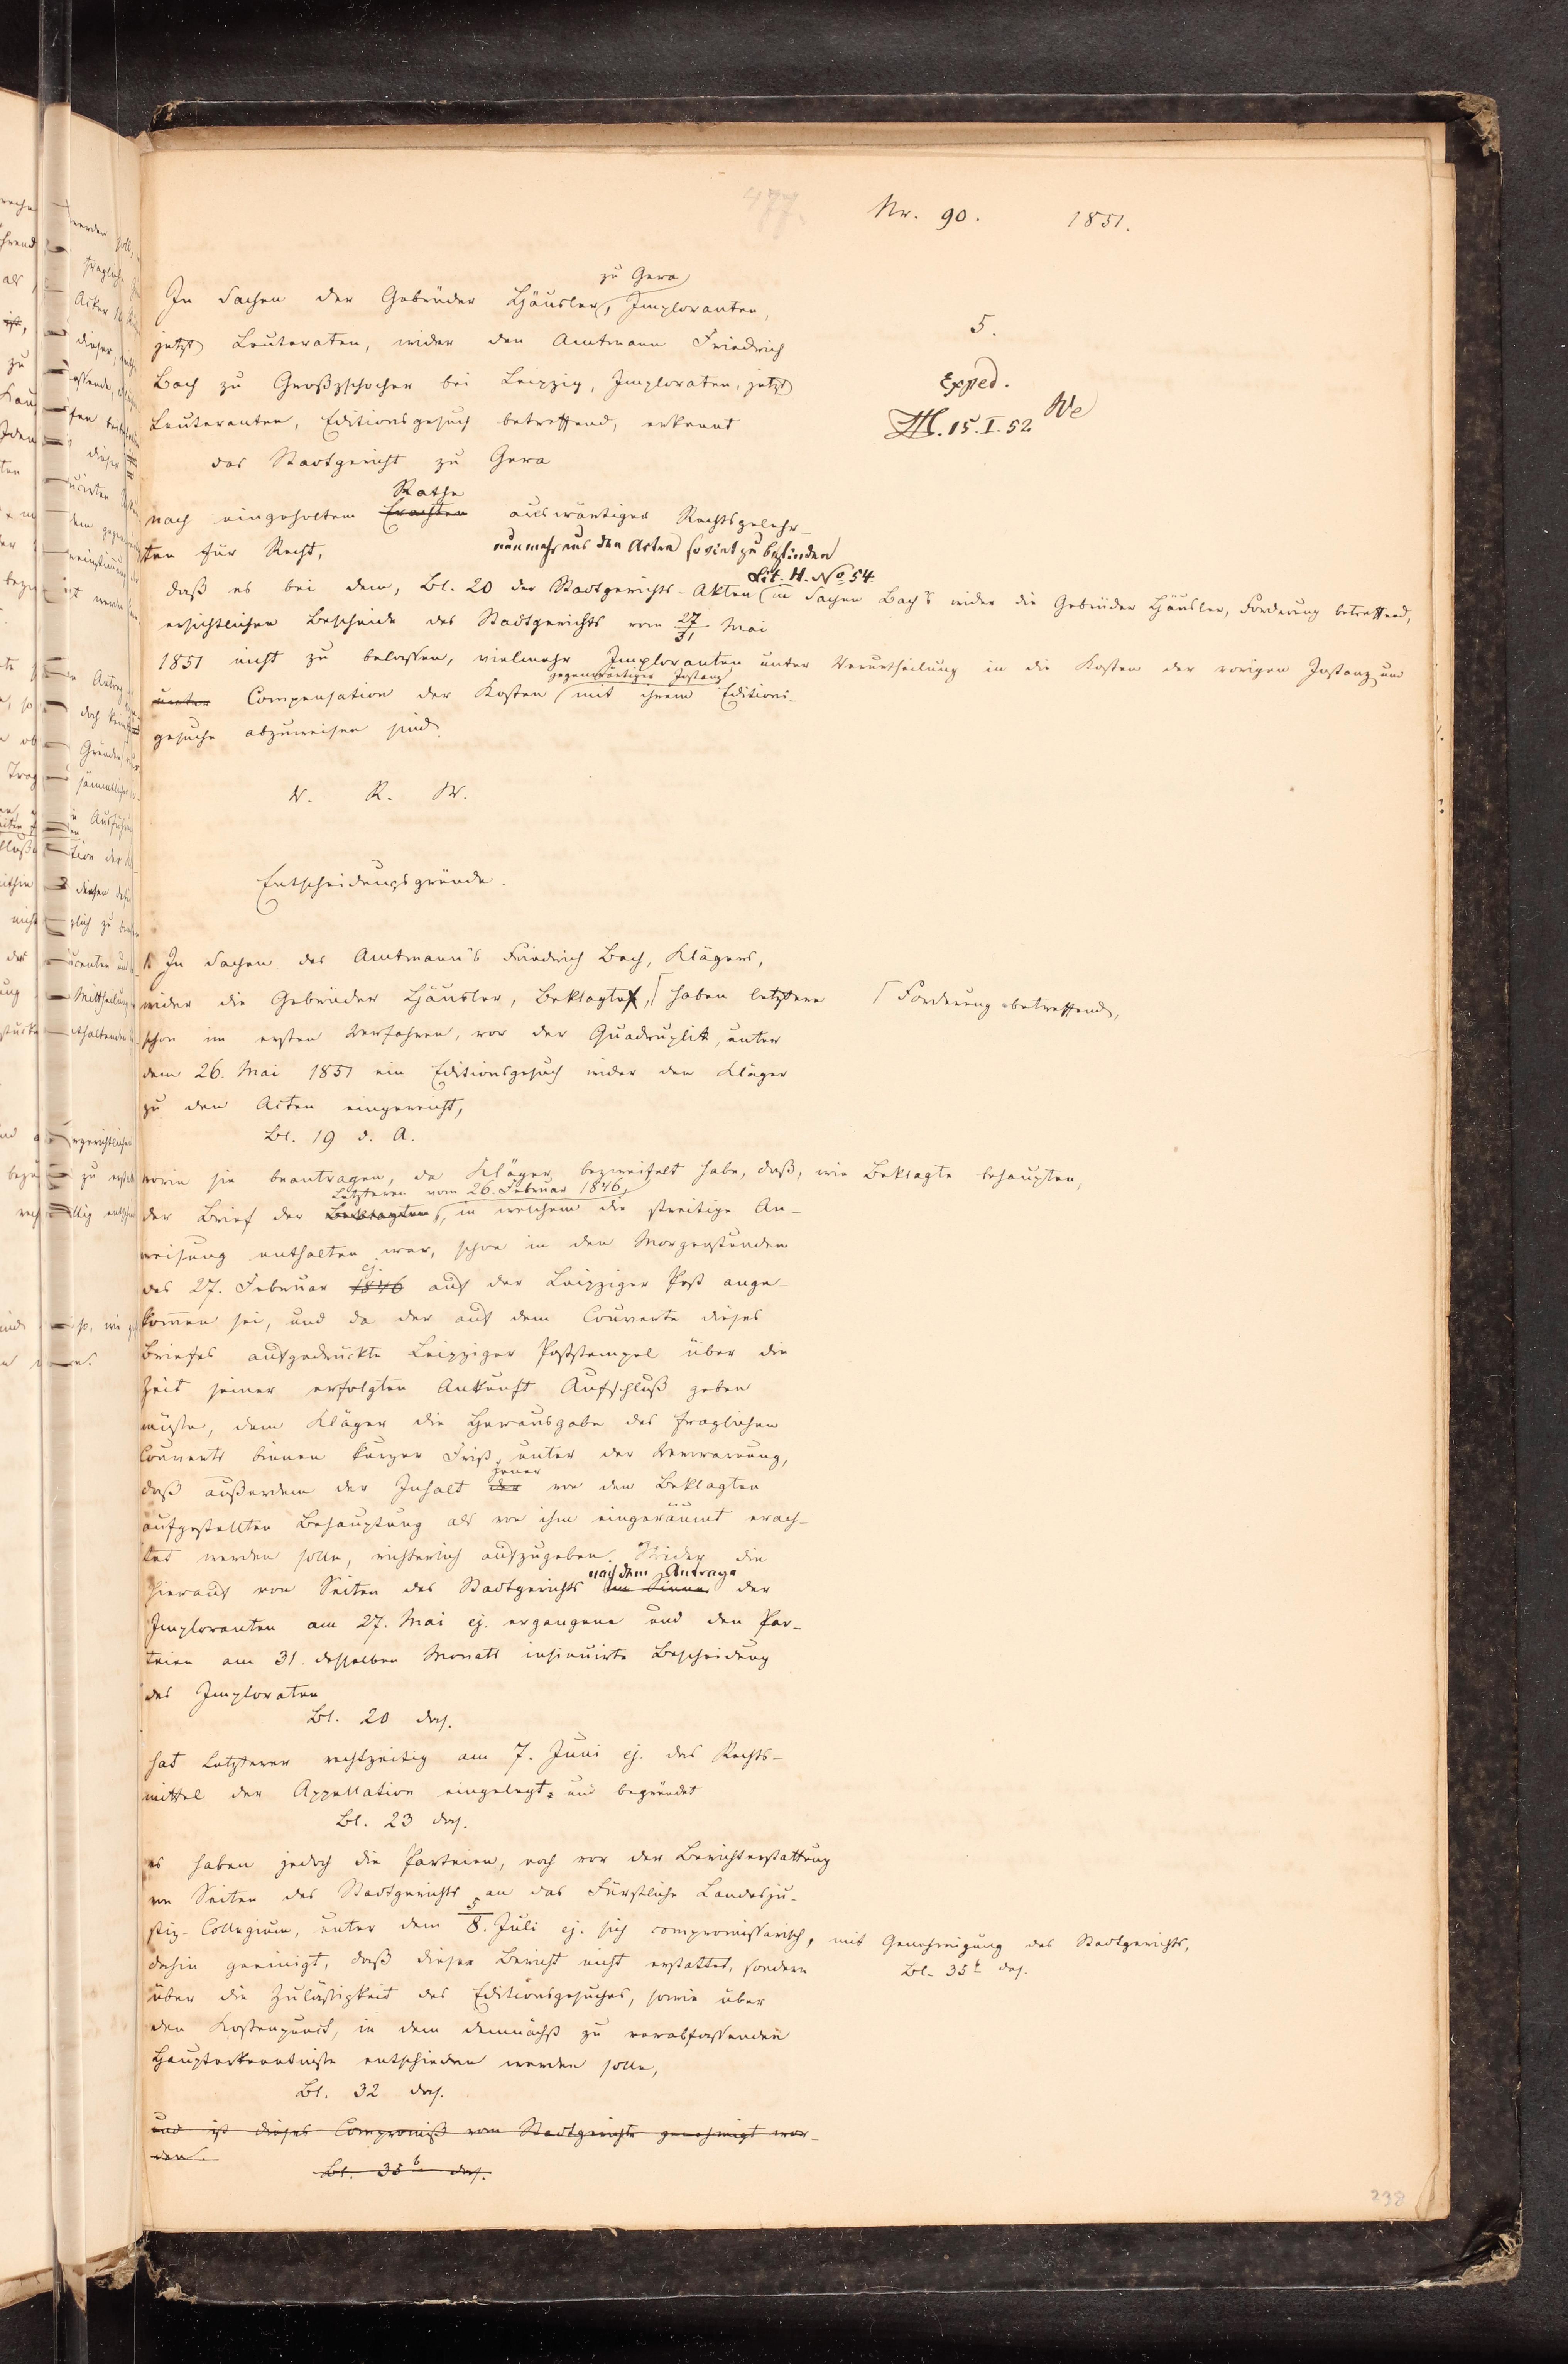 477.
Nr. 90. 1851.
zu Gera
In Sachen der Gebrüder Häusler, Imploranten,
jetzt Leuteraten, wider den Amtmann Friedrich
Bach zu Großzschocher bei Leipzig, Imploraten, jetzt
Leuteranten, Editionsgesuch betreffend, erkennt
das Stadtgericht zu Gera
5.
Exped.
15. I. 52 We
Rathe
nach eingeholtem Erachten auswärtiger Rechtsgelehr-
ten für Recht,
nunmehr aus den Acten so viel zu befinden
Lit. H. No 54.
daß es bei dem, Bl. 20 der Stadtgerichts-Akten in Sachen Bach's wider die Gebrüder Häusler, Forderung betreffend,
ersichtlichen Bescheide des Stadtgerichts vom 27/31 Mai
1851 nicht zu belassen, vielmehr Imploranten unter Verurtheilung in die Kosten der vorigen Instanz und
gegenwärtiger Instanz
unter Compensation der Kosten mit ihrem Editions-
gesuche abzuweisen sind.
V. R. W.
Entscheidungsgründe.
In Sachen des Amtmann's Friedrich Bach, Klägers,
wider die Gebrüder Häusler, Beklagte, haben letztere
Forderung betreffend,
schon im ersten Verfahren, vor der Quadruplik, unter
dem 26. Mai 1851 ein Editionsgesuch wider den Kläger
zu den Acten eingereicht,
Bl. 19 d. A.
worin sie beantragen, da Kläger bezweifelt habe, daß, wie Beklagte behaupten,
Letzteren vom 26. Februar 1846,
der Brief der Beklagten, in welchem die streitige An-
weisung enthalten war, schon in den Morgenstunden
ej.
des 27. Februar 1846 auf der Leipziger Post ange-
kommen sei, und da der auf dem Couverte dieses
Briefes aufgedruckte Leipziger Poststempel über die
Zeit seiner erfolgten Ankunft Aufschluß geben
müsse, dem Kläger die Herausgabe des fraglichen
Couverts binnen kurzer Frist, unter der Verwarnung,
jener
daß außerdem der Inhalt der von den Beklagten
aufgestellten Behauptung als von ihm eingeräumt erach-
tet werden solle, richterlich aufzugeben. Wider die
nach dem Antrage
hierauf von Seiten des Stadtgerichts im Sinne der
Imploranten am 27. Mai ej. ergangene und den Par-
teien am 31. desselben Monats insinuirte Bescheidung
des Imploraten
Bl. 20 das.
hat Letzterer rechtzeitig am 7. Juni ej. das Rechts-
mittel der Appellation eingelegt und begründet
Bl. 23 das.
es haben jedoch die Parteien, noch vor der Berichterstattung
von Seiten des Stadtgerichts an das Fürstliche Landesju-
stiz-Collegium, unter dem 5/8. Juli ej. sich compromissarisch, mit Genehmigung des Stadtgerichts,
Bl. 35b das.
dahin geeinigt, daß dieser Bericht nicht erstattet, sondern
über die Zulässigkeit des Editionsgesuches, sowie über
den Kostenpunct, in dem demnächst zu verabfassenden
Haupterkenntnisse entschieden werden solle,
Bl. 32 das.
und ist dieses Compromiß vom Stadtgerichte genehmigt wor-
den.
Bl. 35b das.
238